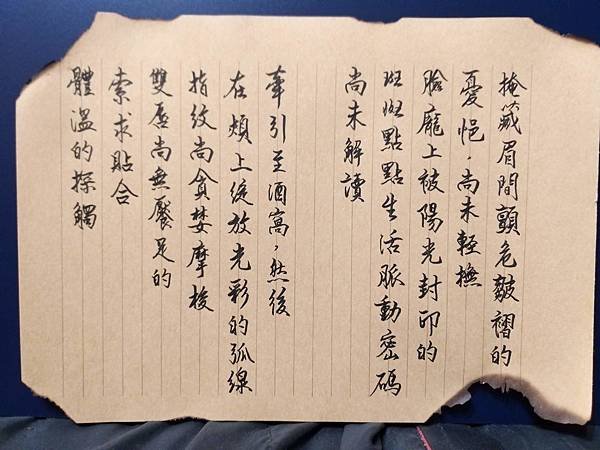 掩藏眉間顫危皺褶的
憂悒,尚未輕撫
臉龐上被陽光封印的
斑斑點點生活脈動密碼
尚未解讀
牽引至酒窩,然後
在頰上綻放光彩的弧線
指紋尚貪婪摩梭
雙唇尚無饜足的
索求貼合
體溫的探觸